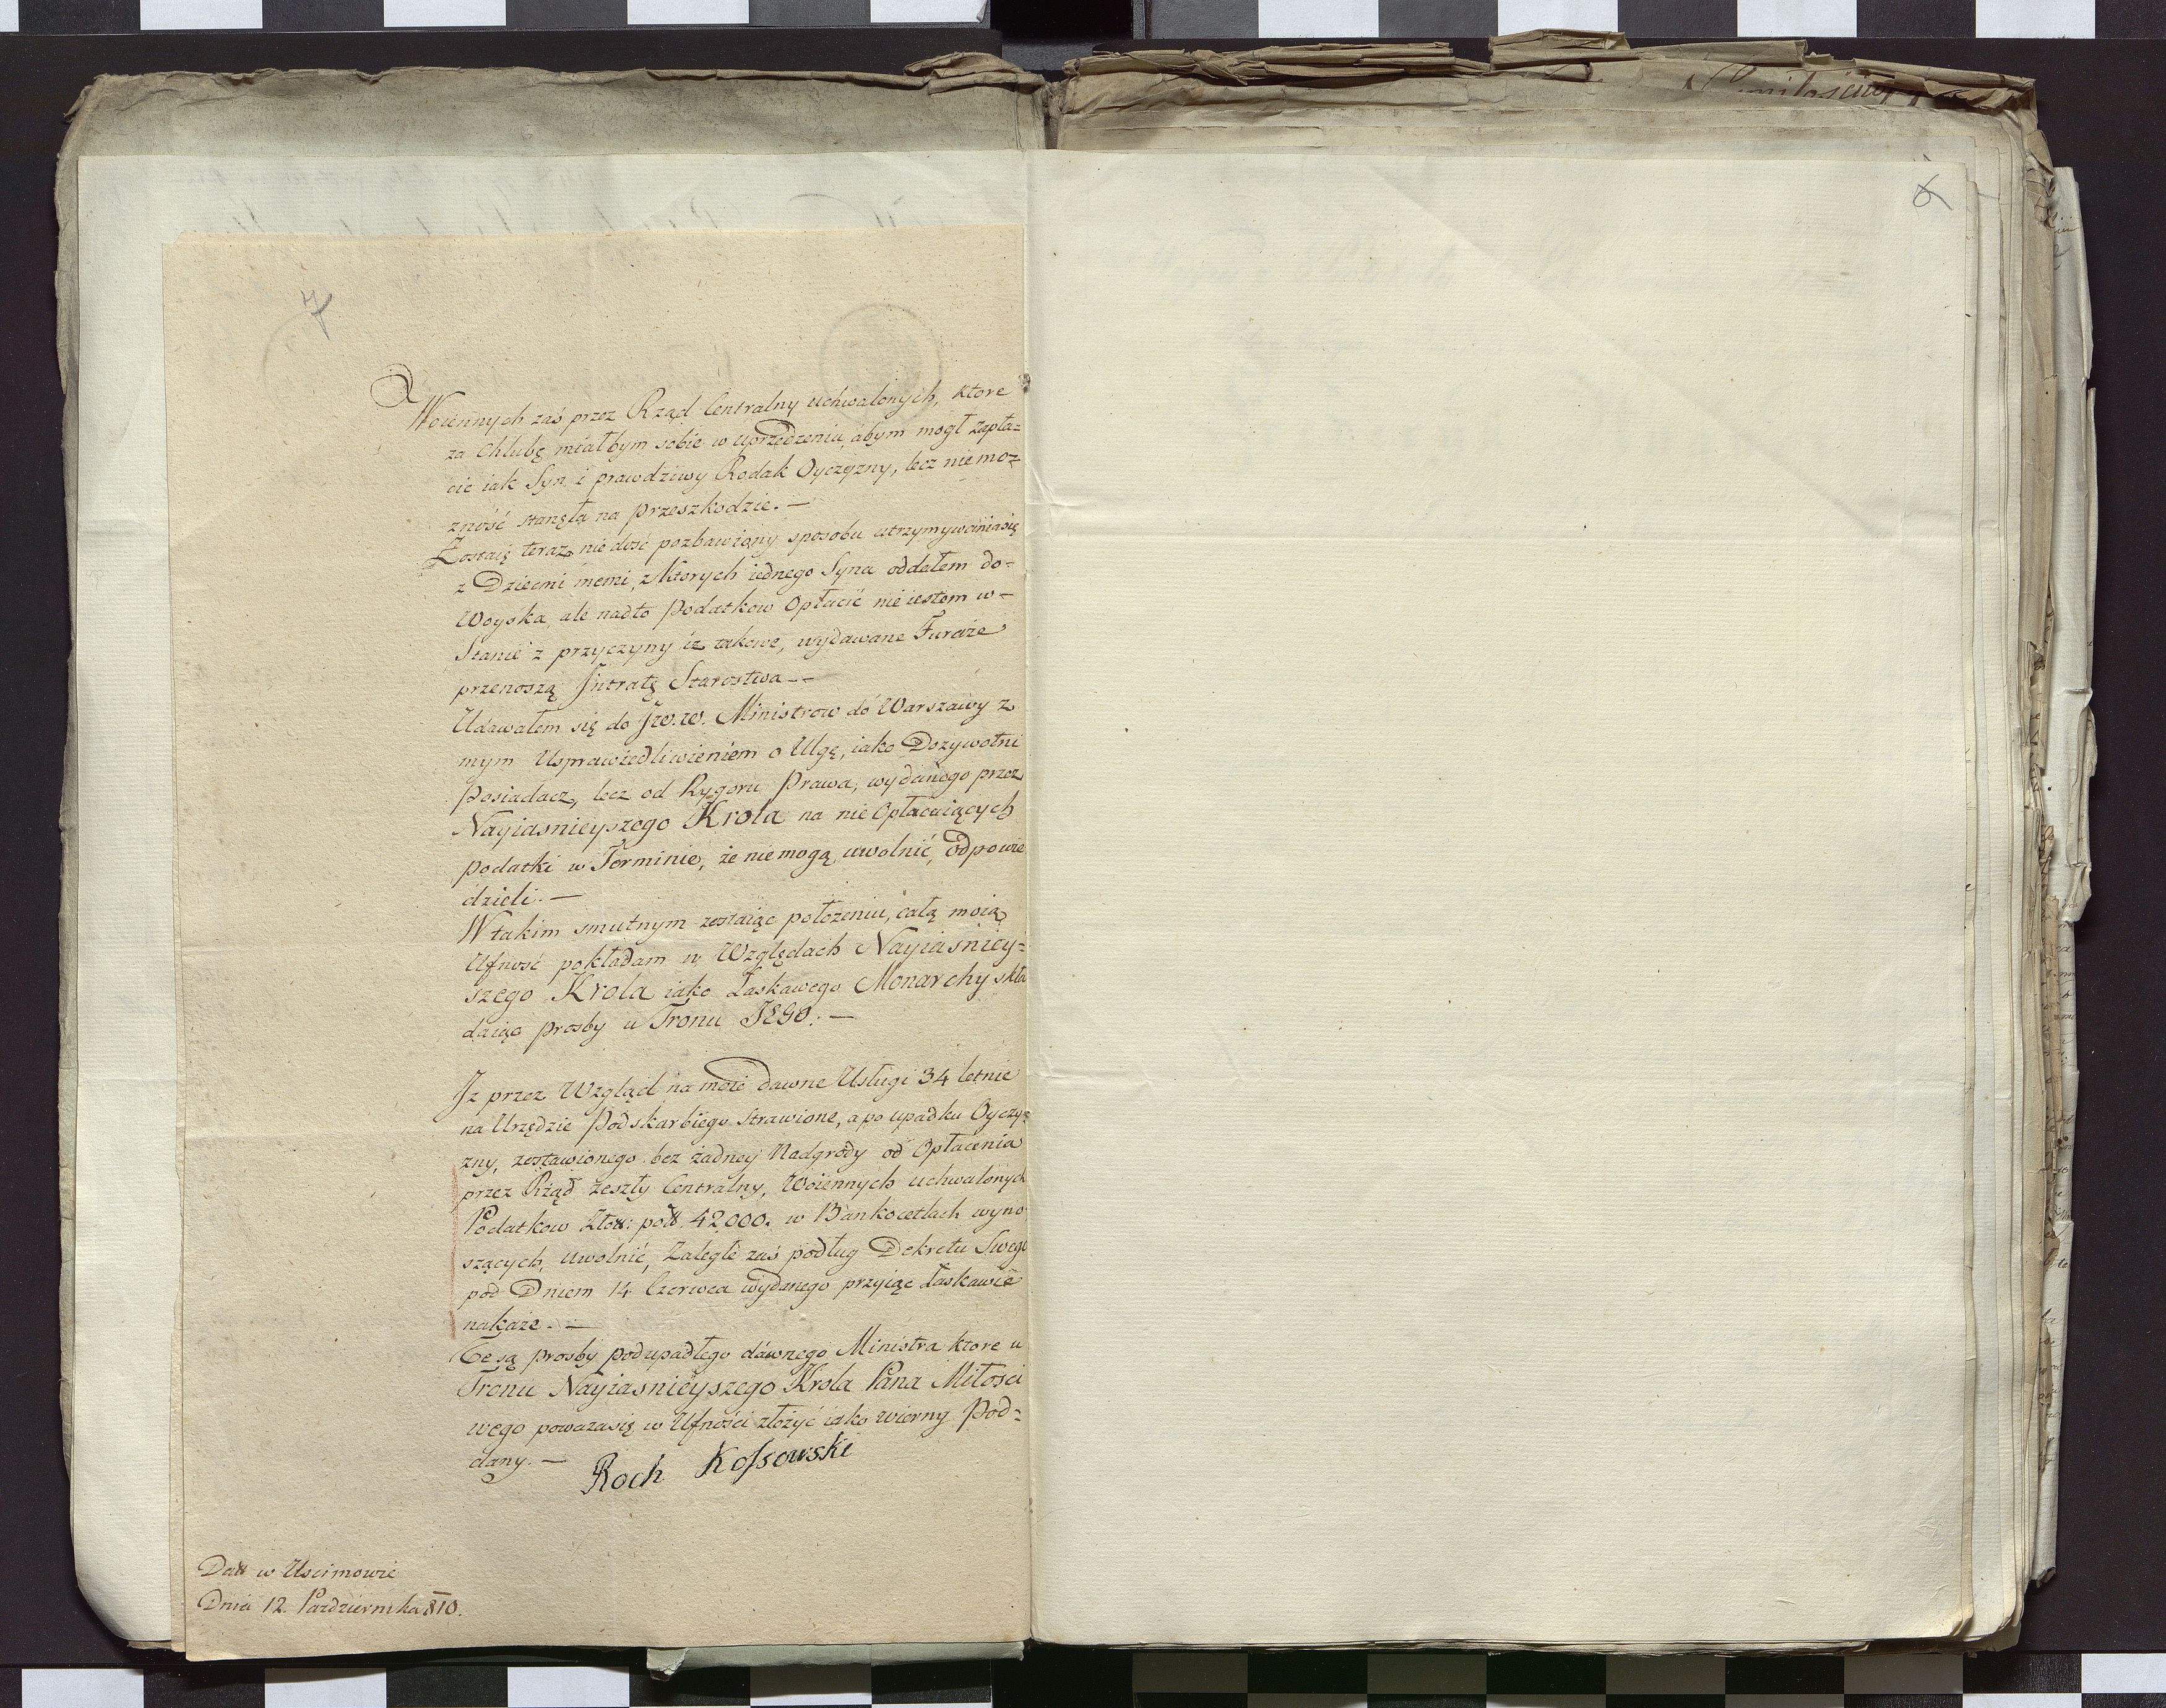 7
Woiennych zaś przez Rząd Centralny uchwalonych, ktore
za Chlubę miałbym sobie w uprzedzeniu, abym mogł zapła=
cic iak Syn i prawdziwy Rodak Oyczyzny, lecz niemoz
zność stanęła na przeszkodzie. —
Zostaię teraz nie dość pozbawiony sposobu utrzymywania się
z Dziecmi memi, z ktorych iednego Syna oddałem do=
Woyska, ale nadto Podatkow Opłacić nie iestem w=
Stanie z przyczyny iz takowe, wydawane Furaże
przenoszą Jntratę Starostwa —
Udawałem się do Jw.w. Ministrow do Warszawy z
mym Usprawiedliwieniem o Ulgę, iako Dozywotni
Posiadacz, lecz od Rygoru Prawa, wydanego przez
Nayiasnieyszego Krola na nie Opłacaiących
podatki w Terminie, że niemogą uwolnić, odpowie
dzieli. —
W takim smutnym zostaiąc położeniu, całą moią
Ufność pokładam w Względach Nayiasniey=
szego Krola iako Łaskawego Monarchy skła
daiąc prosby u Tronu JEGO. —
Jz przez Wzgląd na moie dawne Usługi 34 letnie
na Urzędzie Podskarbiego strawione, a po upadku Oyczy=
zny, zostawionego bez żadney Nadgrody od Opłacenia
przez Rząd zeszły Centralny, Woiennych uchwalonych
Podatkow Złox: polx 42,000. w Bankocetlach wyno
szących, uwolnić, Zaległe zaś podług Dekretu Swego
pod Dniem 14 Czerwca wydanego przyiąc łaskawie
nakaże. —
Te są prosby podupadłego dawnego Ministra ktore u
Tronu Nayiasnieyszego Krola Pana Miłosci
wego powaza się w Ufności złożyć iako wierny Pod=
dany. —
Roch Kossowski
Dax w Uscimowie
Dnia 12. Pazdziernika 810.
6